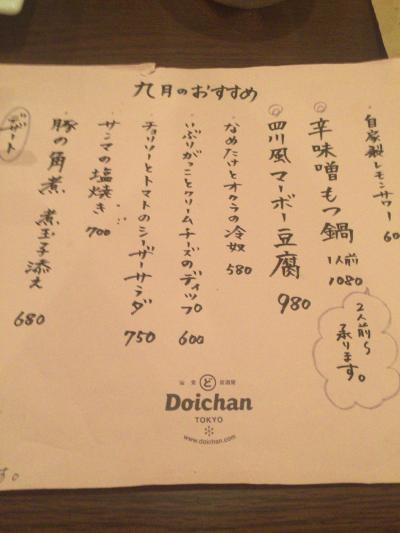 九月のおすすめ
自家製レモンサワー
60
辛味噌もつ鍋
1人前
1080
2人前〜
承ります。
四川風マーボー豆腐
980
なめたけとオクラの冷奴
580
いぶりがっことクリームチーズのディップ
600
チョリソーとトマトのシーザーサラダ
750
サンマの塩焼き
700
豚の角煮 煮玉子添え
680
デザート
ど
居酒屋
Doichan
TOKYO
www.doichan.com
す。